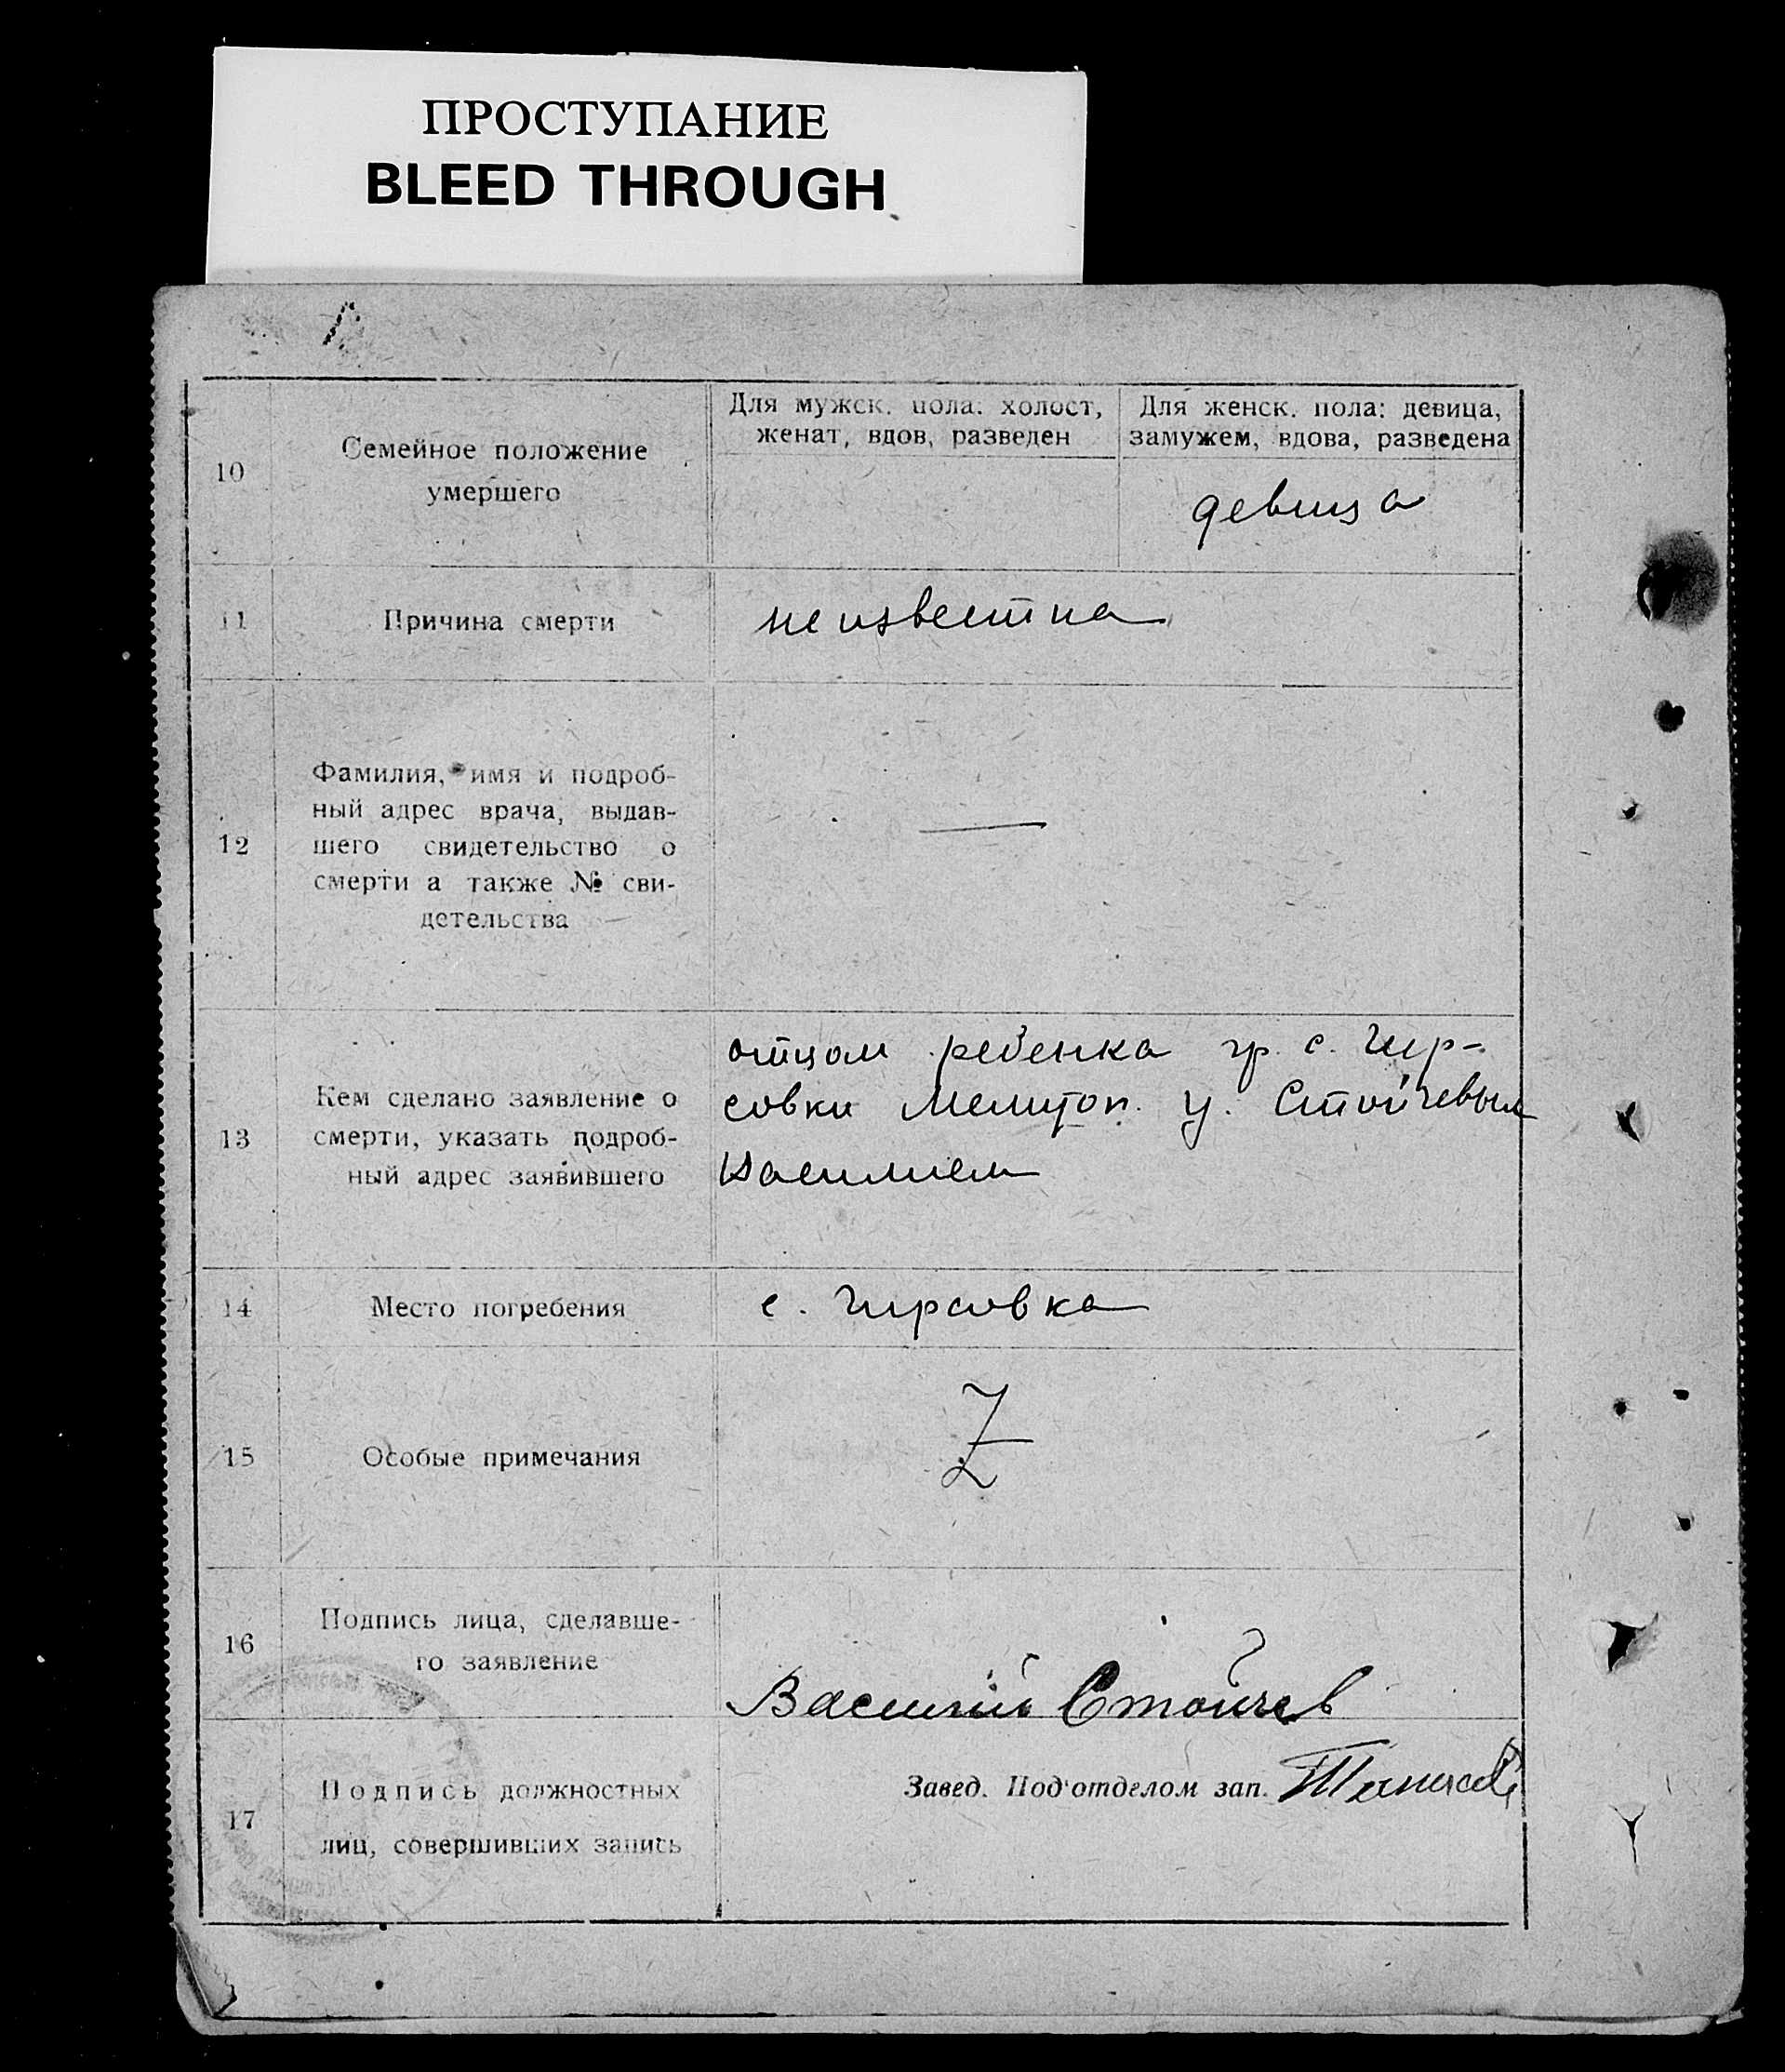 ПРОСТУПАНИЕ
BLEED THROUGH
10
Семейное положение
умершего
Для мужск. пола: холост,
женат, вдов, разведен
Для женск. пола: девица,
замужем, вдова, разведена
девица
11
Причина смерти
неизвестна
12
Фамилия, имя и подроб-
ный адрес врача, выдав-
шего свидетельство о
смерти а также № сви-
детельства
—
13
Кем сделано заявление о
смерти, указать подроб-
ный адрес заявившего
отцом ребенка гр. с. Гир-
совки Мелитоп. у. Стойчевым
Василием
14
Место погребения
с. Гирсовка
15
Особые примечания
Z
16
Подпись лица, сделавше-
го заявление
Василий Стойчев
17
Подпись должностных
лиц, совершивших запись
Завед. Под'отделом зап.